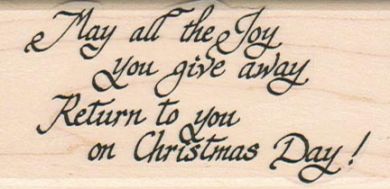 May all the Joy
you give away
Return to you
on Christmas Day!